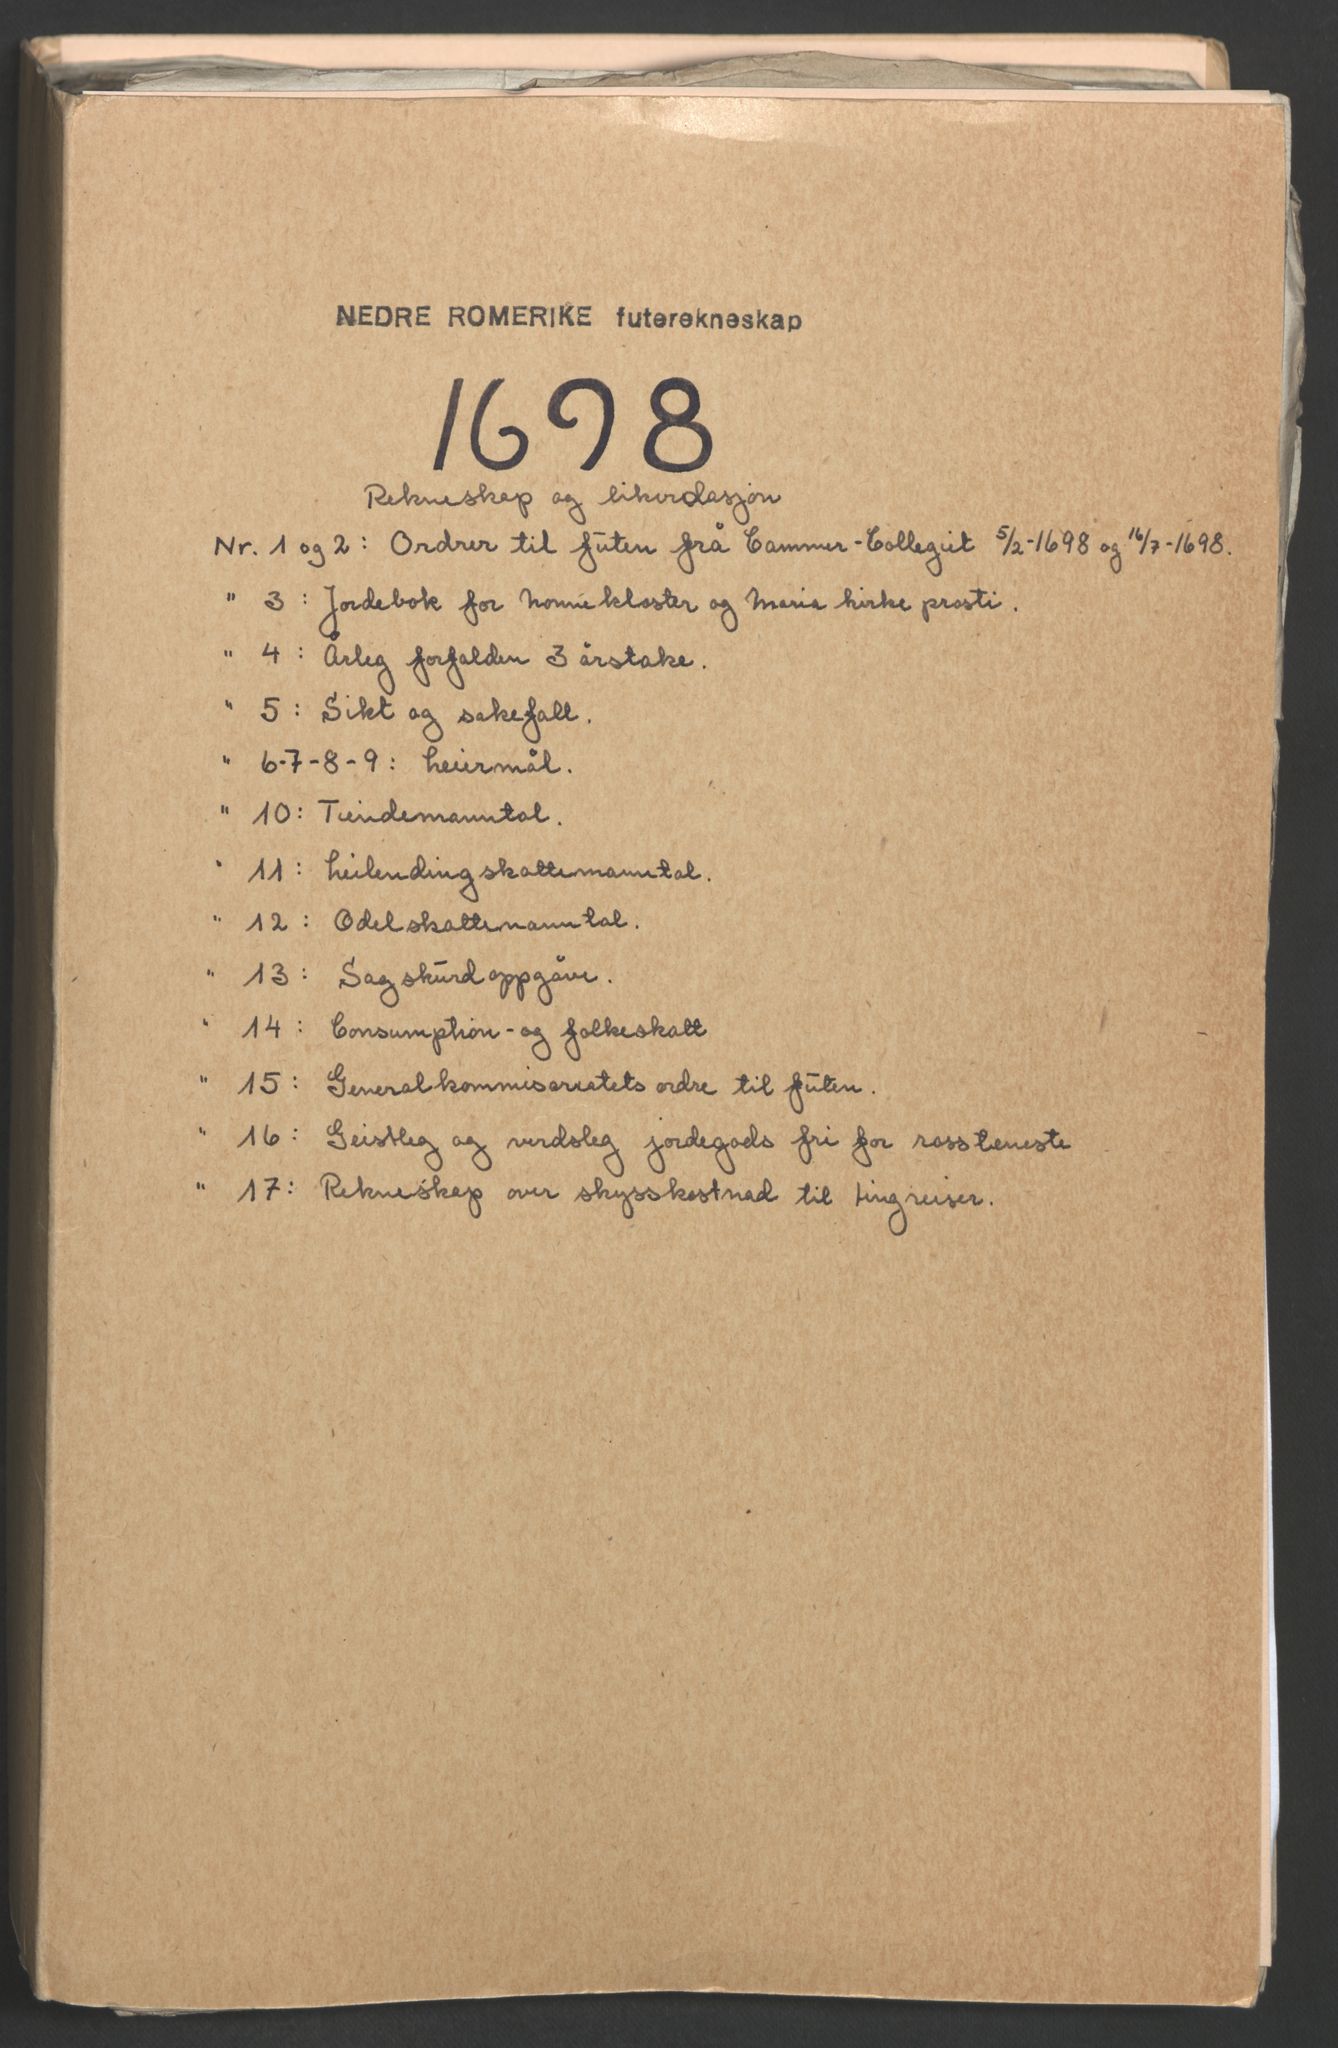 NEDRE ROMERIKE futerekneskap
1698
Rekneskap og likvidasjon
Nr. 1 og 2: Ordrer til fūten frå Cammer-Collegiet 5/2-1698 og 16/7-1698.
" 3: Jordebok for Nonnekloster og Maria kirke prosti.
" 4: Årleg forfalden 3 årstake.
" 5: Sikt og sakefall.
" 6-7-8-9: Leiermål.
" 10: Tiendemanntal.
" 11: Leilendingskattemanntal.
" 12: Odelskattemanntal.
" 13: Sagskūrdoppgåve.
" 14: Consumption- og folkeskatt
" 15: Generalkommisariatets ordre til fūten.
" 16: Geistleg og verdsleg jordegods fri for rossteneste
" 17: Rekneskap over skysskostnad til tingreiser.